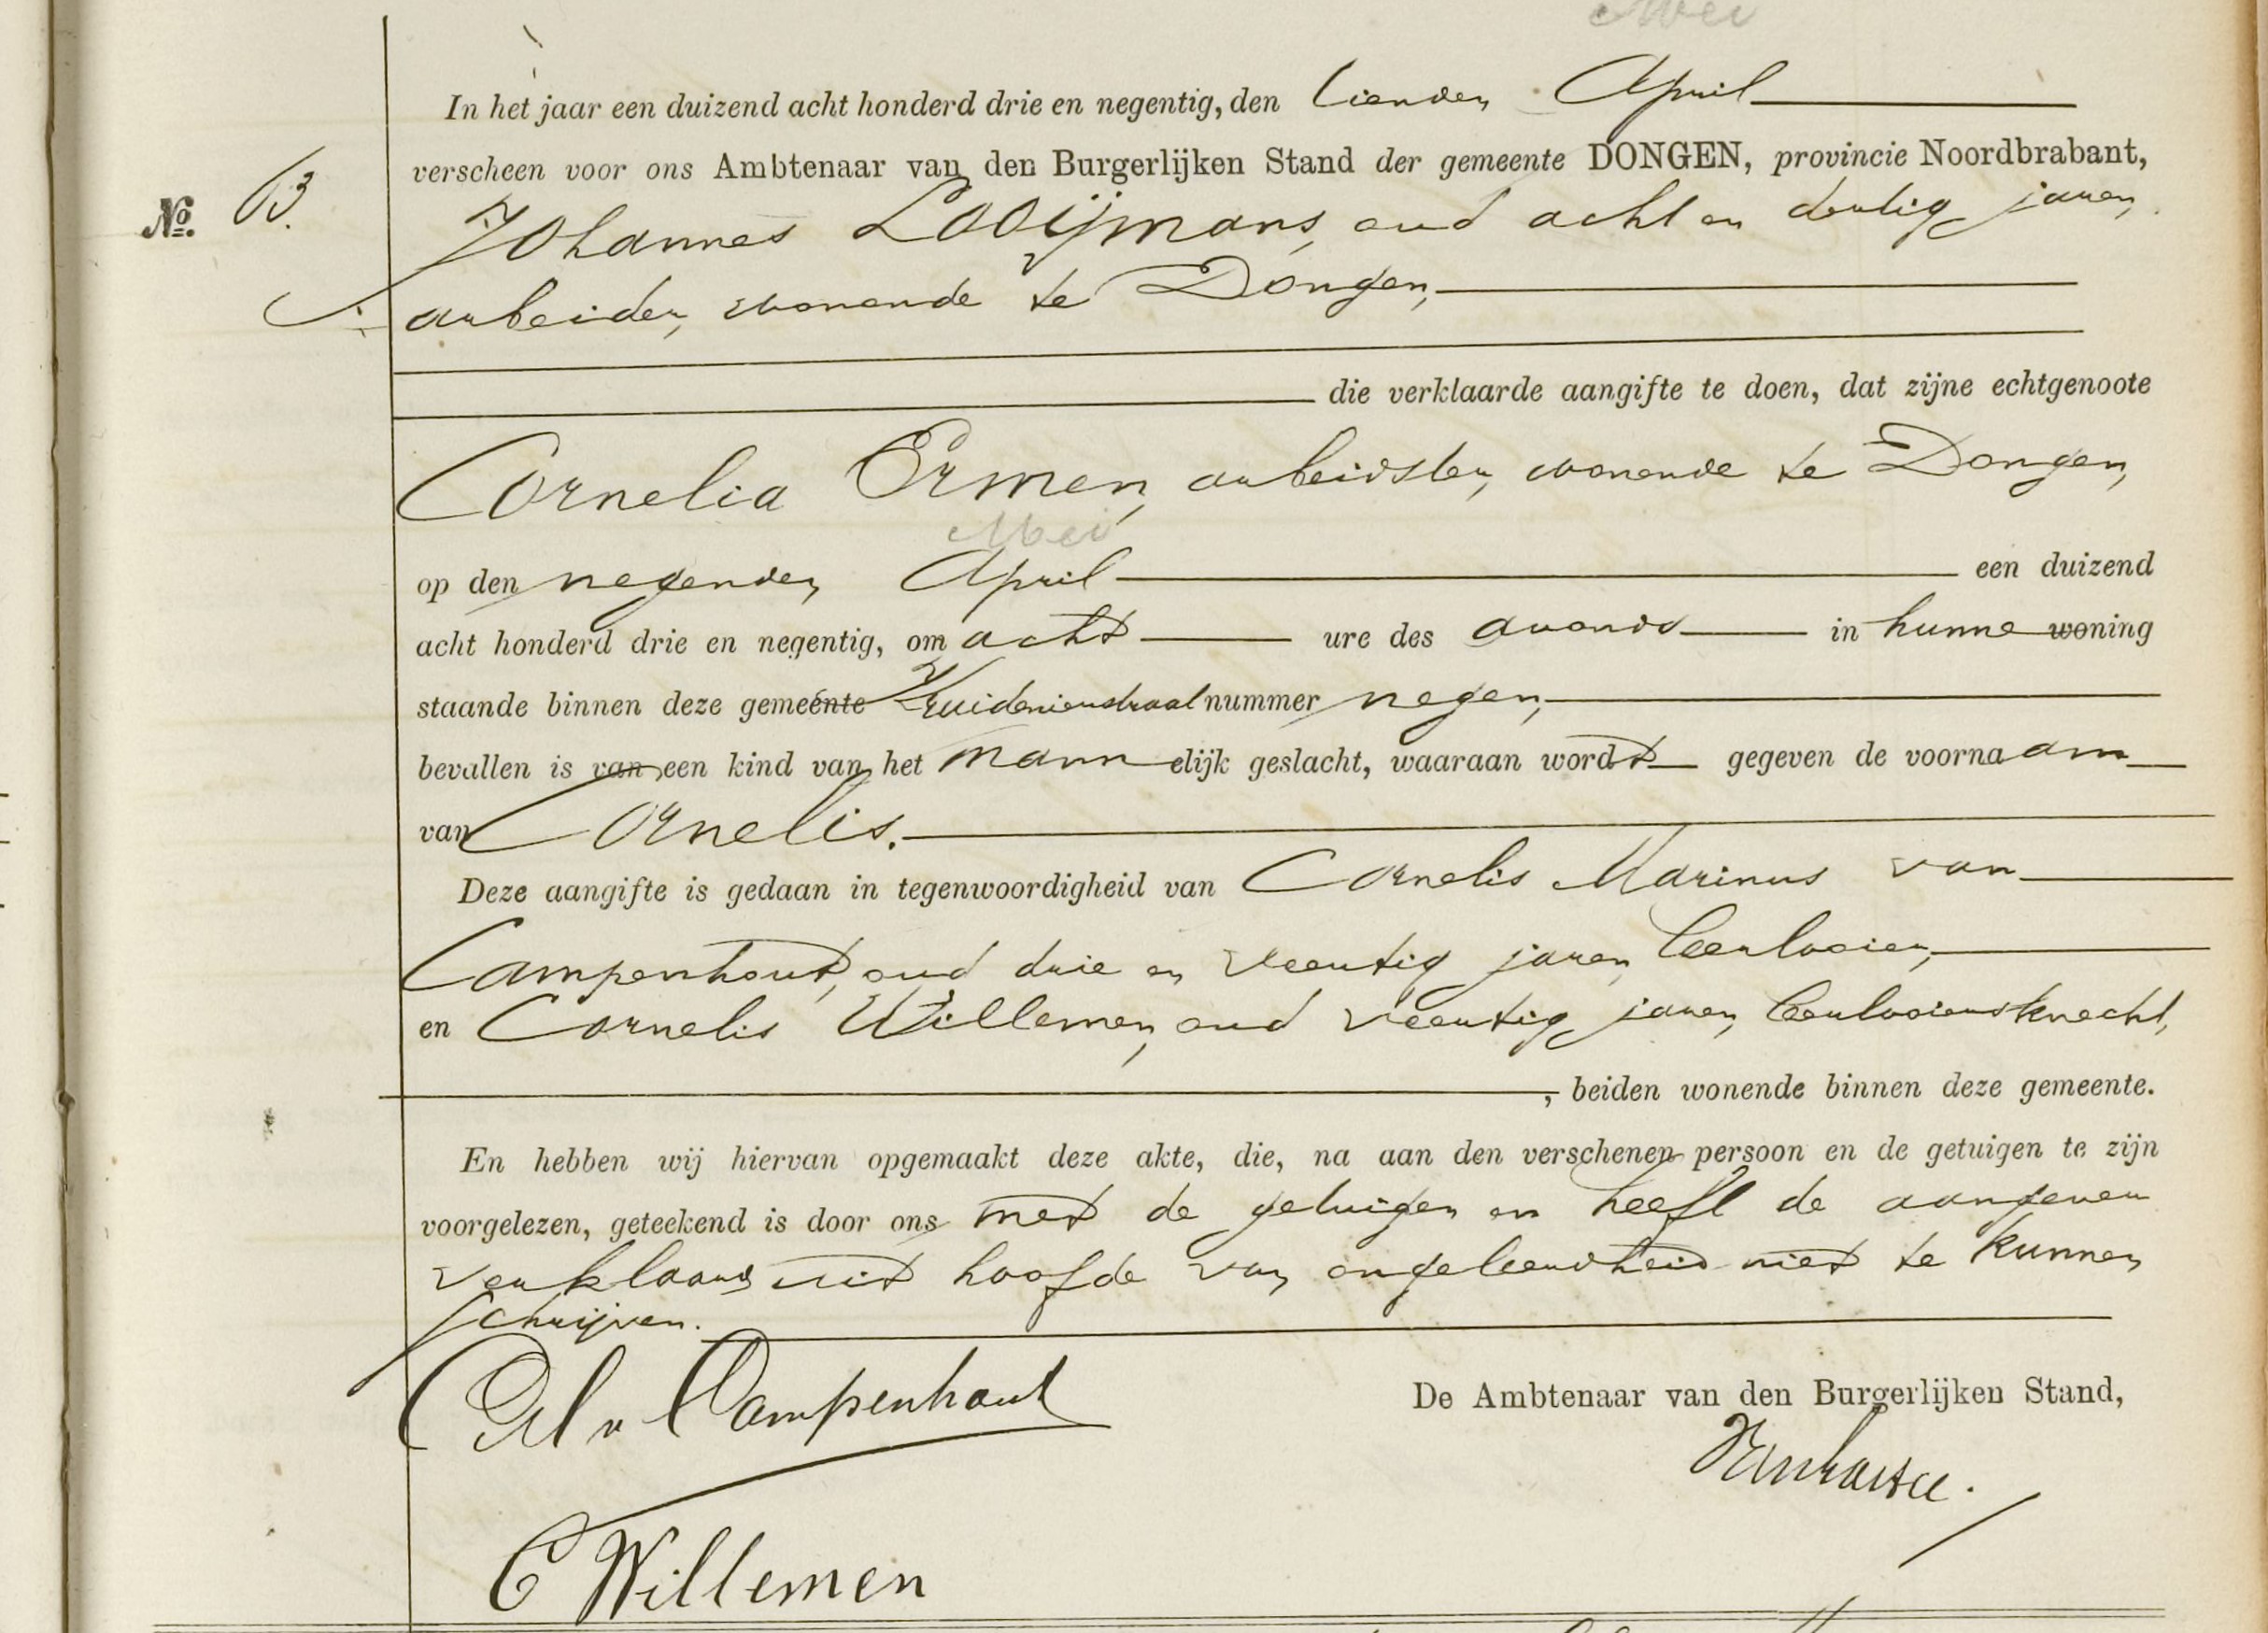 Mei
In het jaar een duizend acht honderd drie en negentig, den tienden April
verscheen voor ons Ambtenaar van den Burgerlijken Stand der gemeente DONGEN, provincie Noordbrabant,
No. 63.
Johannes Looijmans, oud acht en dertig jaren,
arbeider, wonende te Dongen,
die verklaarde aangifte te doen, dat zijne echtgenoote
Cornelia Ermen, arbeidster, wonende te Dongen,
Mei
op den negenden April een duizend
acht honderd drie en negentig, om acht ure des avonds in hunne woning
staande binnen deze gemeente Kruidenierstraat nummer negen,
bevallen is van een kind van het mannelijk geslacht, waaraan wordt gegeven de voornaam
van Cornelis.
Deze aangifte is gedaan in tegenwoordigheid van Cornelis Marinus van
Campenhout, oud drie en veertig jaren, leerlooier,
en Cornelis Willemen, oud veertig jaren, leerlooiersknecht,
, beiden wonende binnen deze gemeente.
En hebben wij hiervan opgemaakt deze akte, die, na aan den verschenen persoon en de getuigen te zijn
voorgelezen, geteekend is door ons met de getuigen en heeft de aangever
verklaard uit hoofde van ongeleerdheid niet te kunnen
schrijven.
v Campenhout
De Ambtenaar van den Burgerlijken Stand,
C Willemen